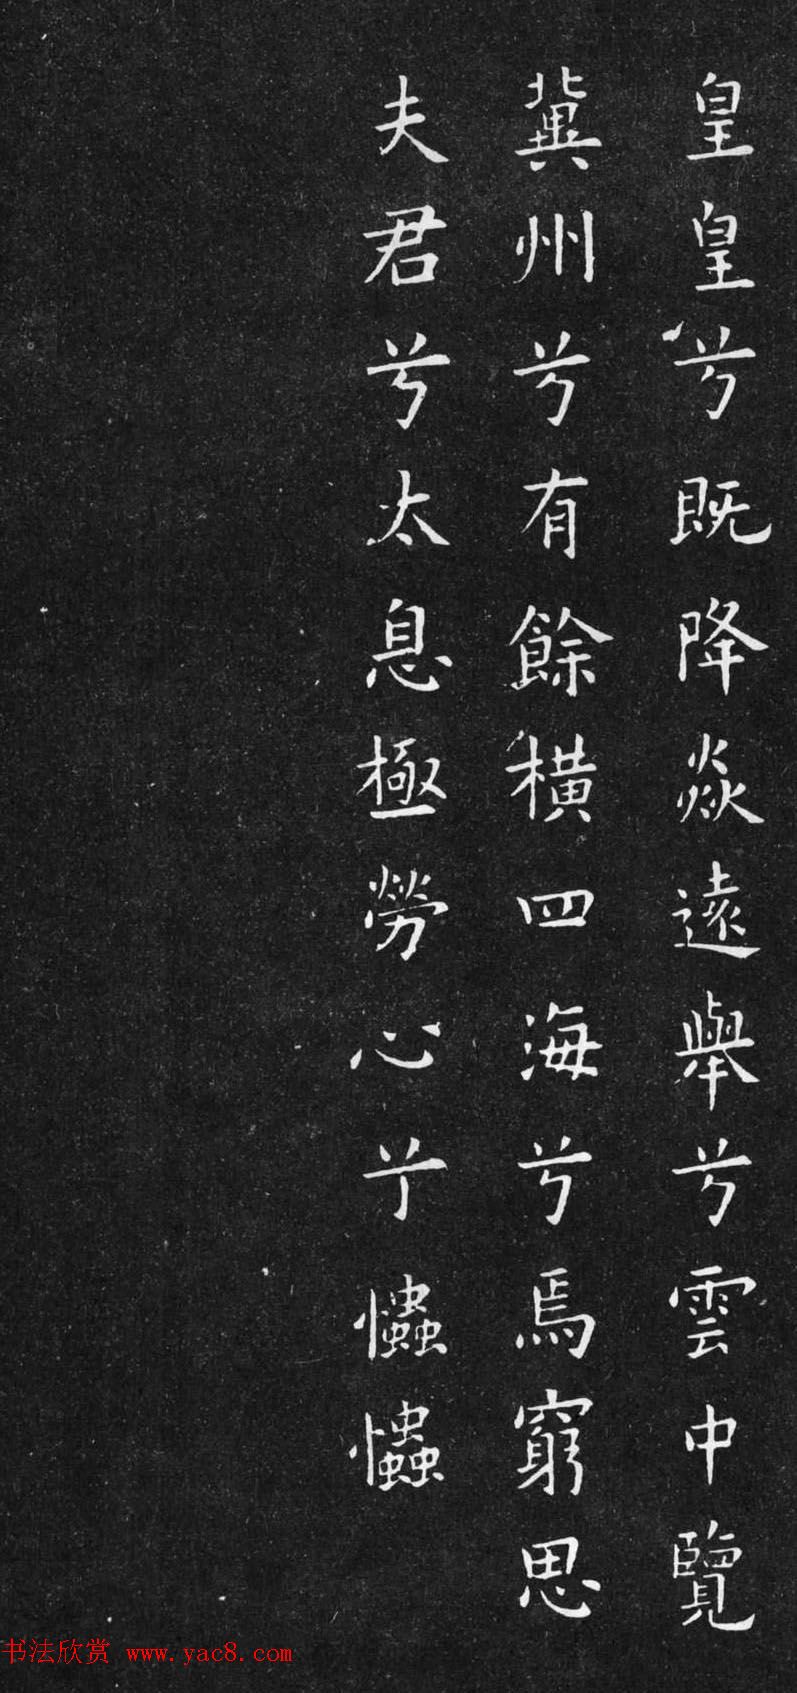 皇皇兮既降焱遠舉兮雲中覽
兾州兮有餘橫四海兮焉窮思
夫君兮太息極勞心兮忡忡
书法欣赏 www.yac8.com